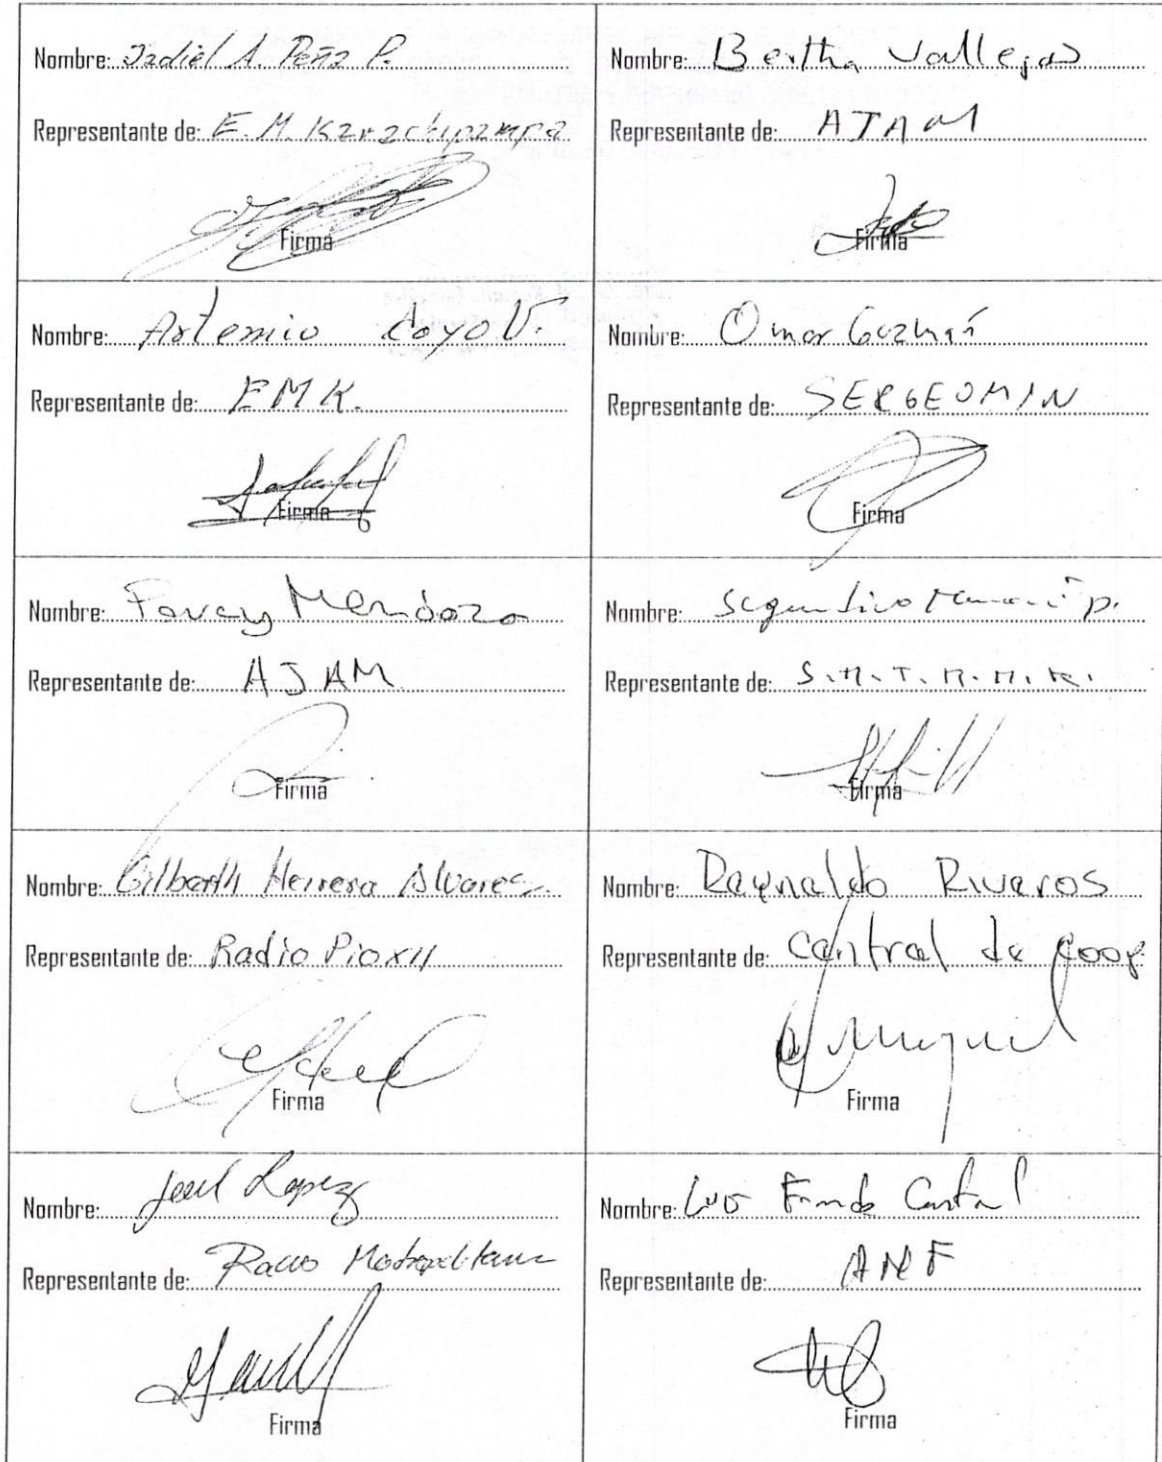 Nombre: Jadiel A. Peña P.
Representante de: E.M. Karachipampa
Firma
Nombre: Bertha Vallejos
Representante de: AJAM
Firma
Nombre: Artemio Coyo V.
Representante de: EMK.
Firma
Nombre: Omar Guzmán
Representante de: SERGEOMIN
Firma
Nombre: Mendoza
Representante de: AJAM
Firma
Nombre: Mamani P.
Representante de: S.M.T.M.M.K.
Firma
Nombre: Gilberth Herrera Alvarez
Representante de: Radio Pio XII
Firma
Nombre: Raynaldo Riveros
Representante de: Central de Coop.
Firma
Nombre: Lopez
Representante de: Radio Metropolitana
Firma
Nombre:
Representante de: ANF
Firma